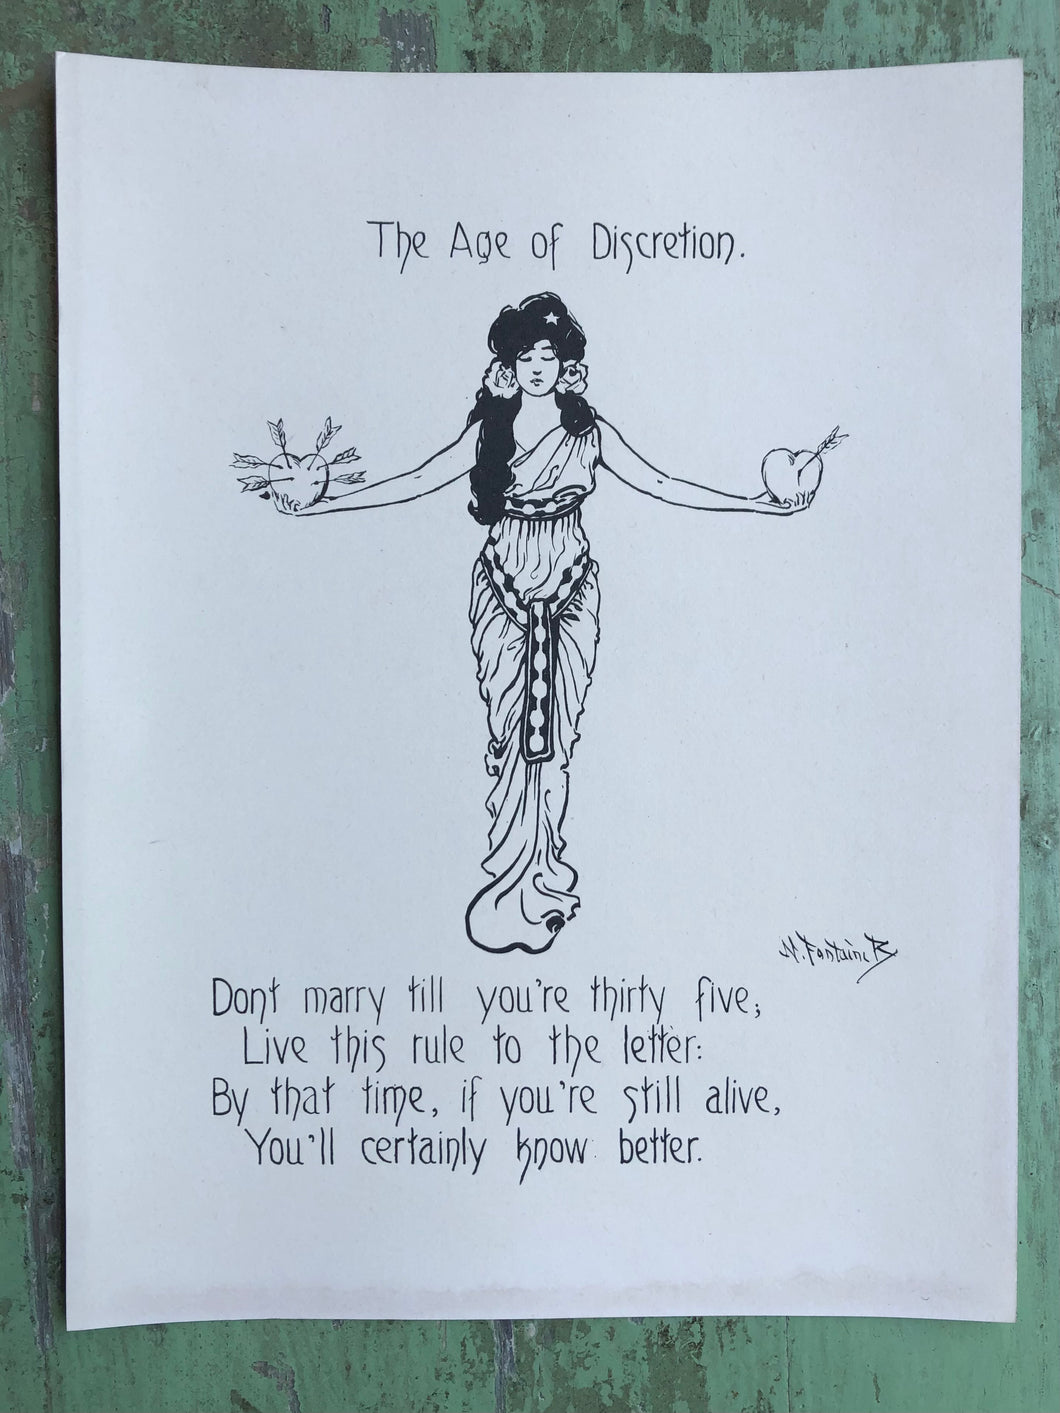 The Age of Discretion.
N. Fontaine B
Dont marry till you're thirty five;
Live this rule to the letter:
By that time, if you're still alive,
You'll certainly know better.